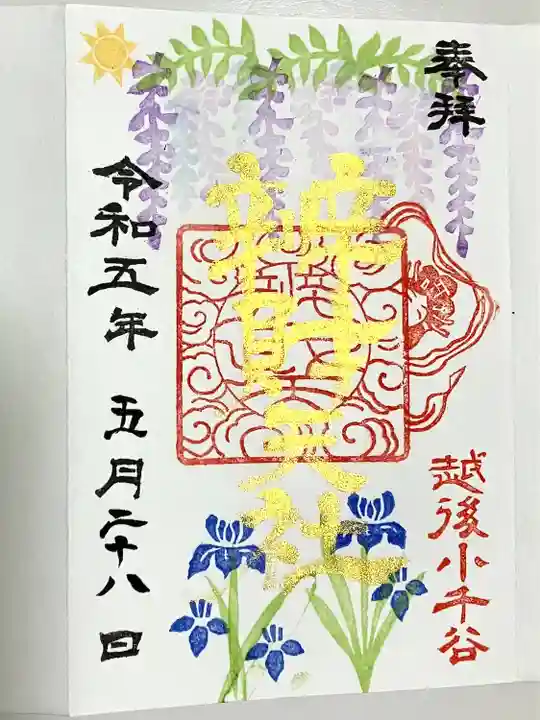 奉拝
越後小千谷
辨財天社
令和五年 五月二十八日